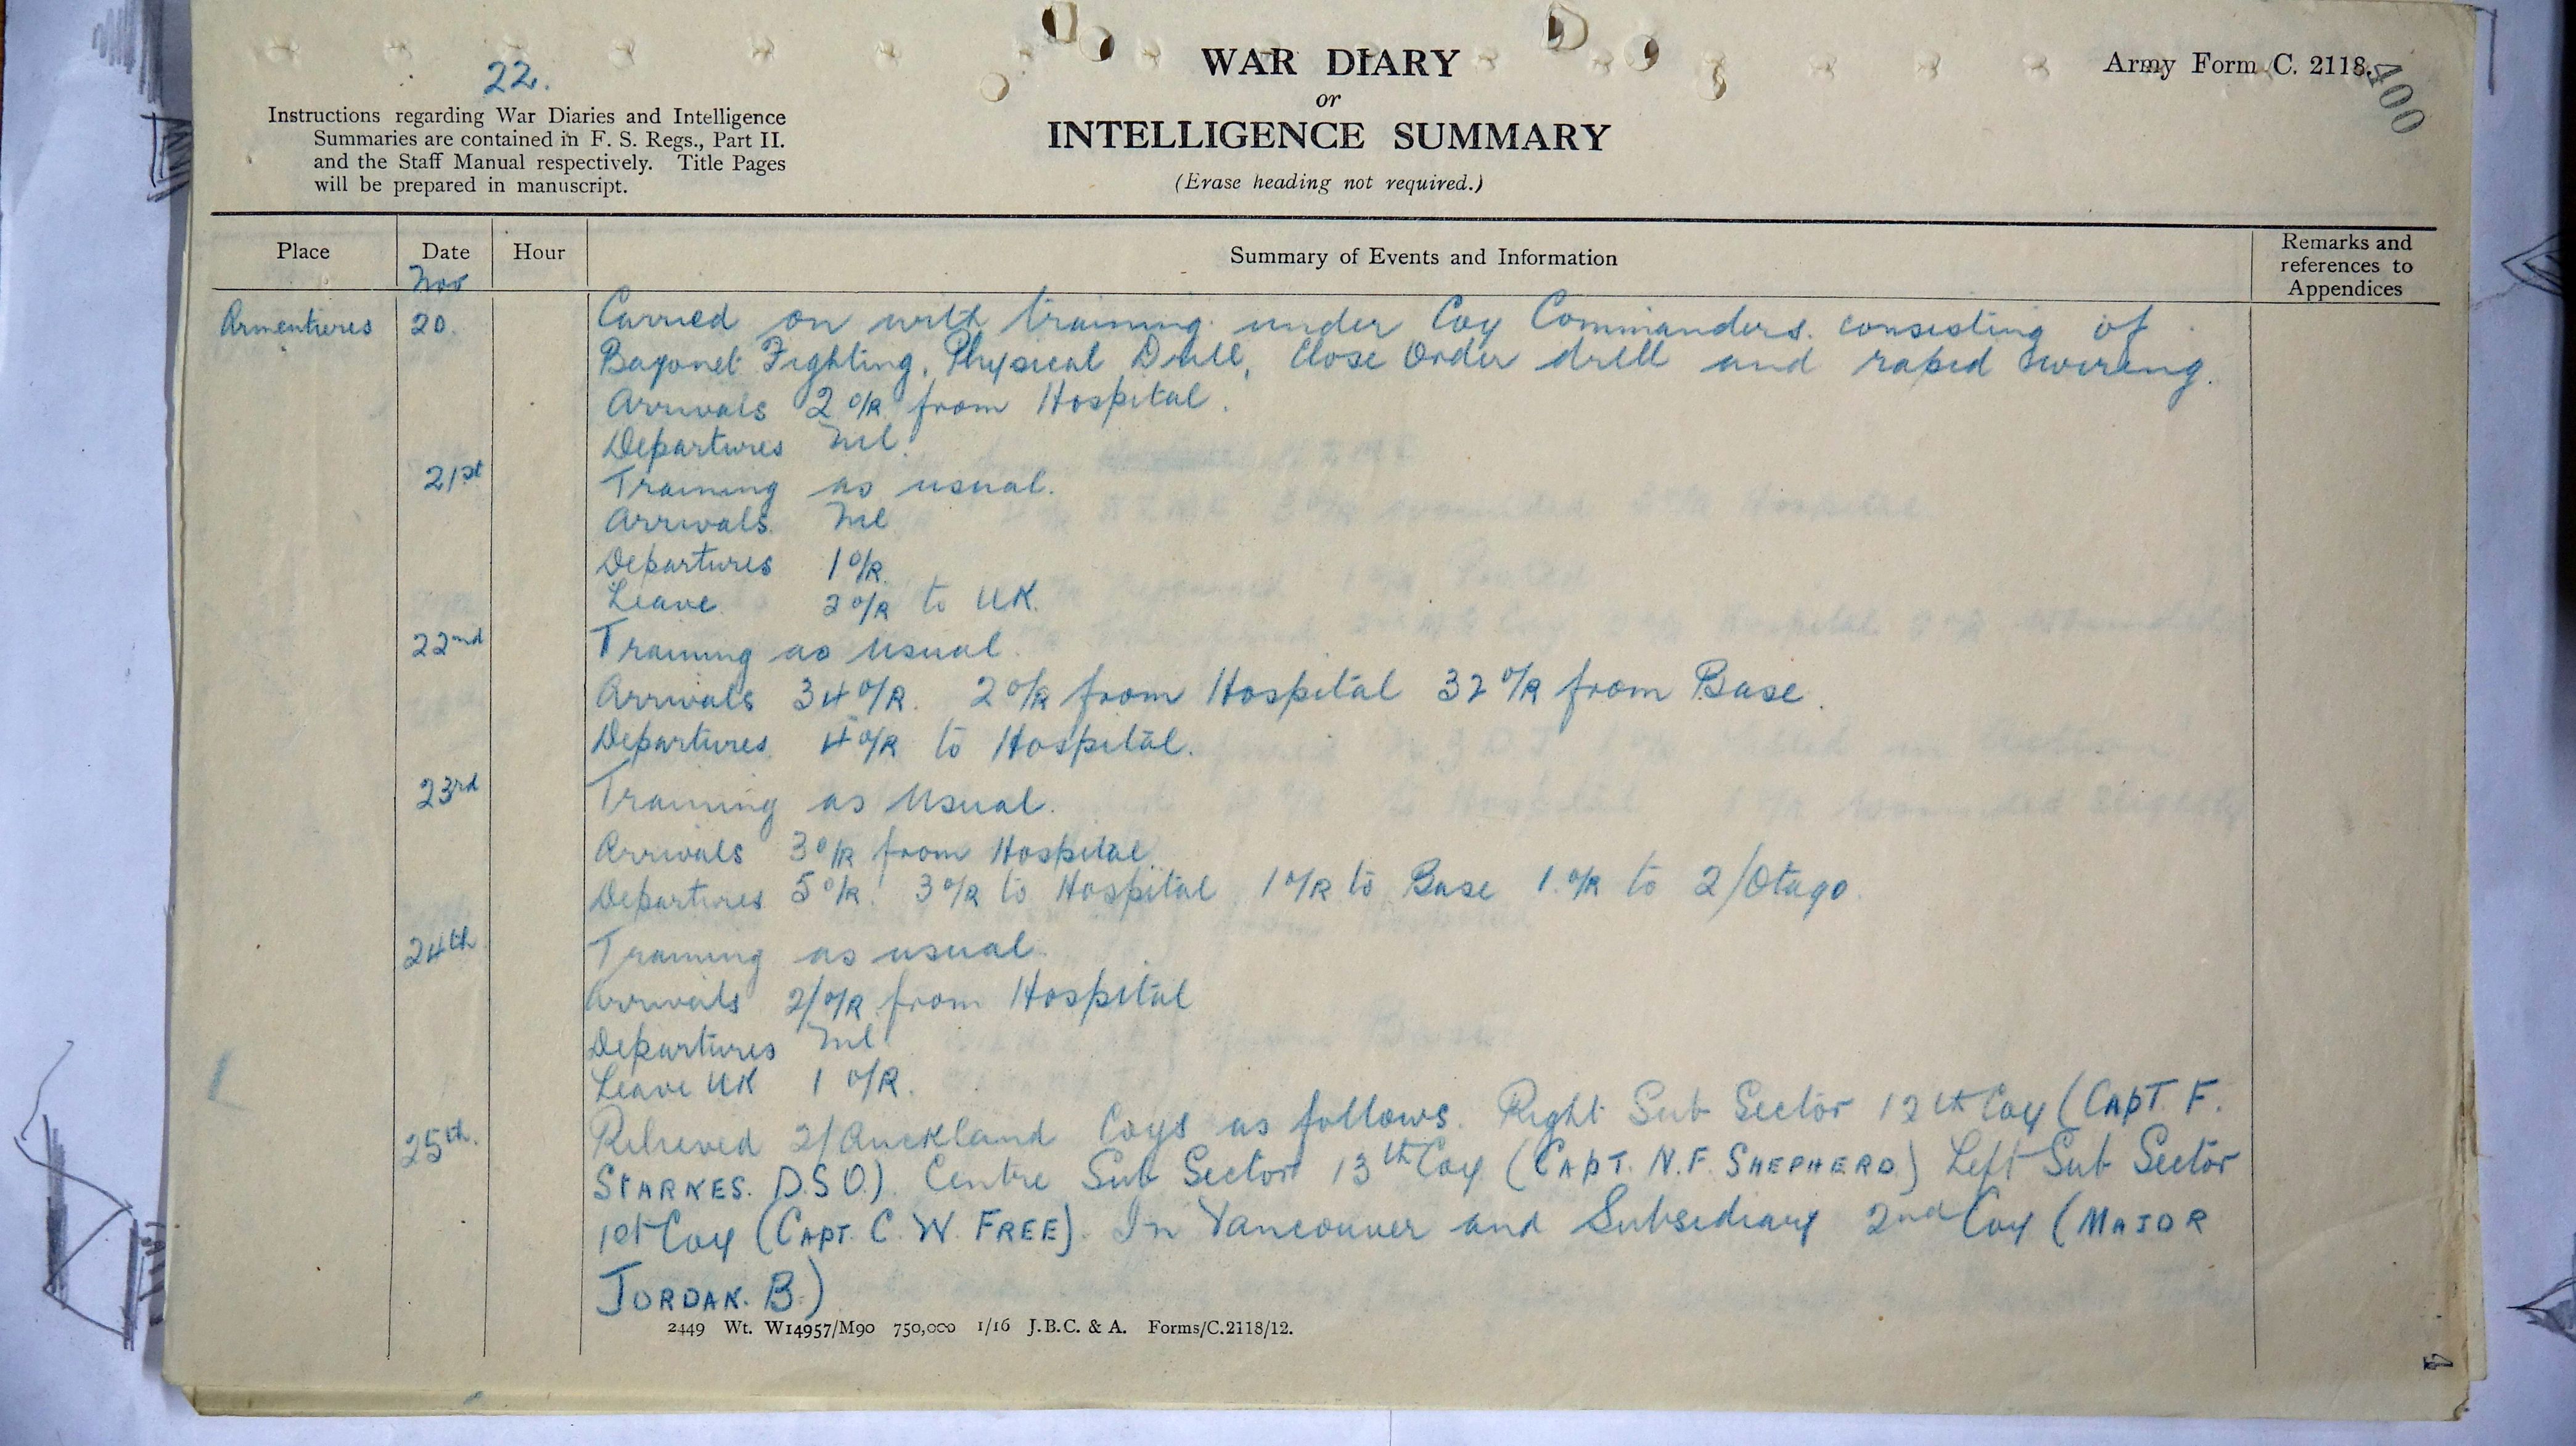 22.
WAR DIARY
or
INTELLIGENCE SUMMARY
(Erase heading not required.)
Army Form C. 2118.
400
Instructions regarding War Diaries and Intelligence
Summaries are contained in F. S. Regs., Part II.
and the Staff Manual respectively. Title Pages
will be prepared in manuscript.
Place Date Hour Summary of Events and Information Remarks and references to Appendices
Nov
Armentieres 20. Carried on with training under Coy Commanders. consisting of
Bayonet Fighting, Physical Drill, Close Order drill and rapid wiring.
Arrivals 2 O/R from Hospital.
Departures Nil.
21st Training as usual.
Arrivals. Nil
Departures 1 O/R.
Leave. 2 O/R to UK.
22nd Training as usual.
Arrivals 34 O/R. 2 O/R from Hospital 32 O/R from Base.
Departures. 4 O/R to Hospital.
23rd Training as usual.
Arrivals 3 O/R from Hospital.
Departures 5 O/R. 3 O/R to Hospital 1 O/R to Base 1. O/R to 2/Otago.
24th Training as usual.
Arrivals 2/O/R from Hospital
Departures Nil.
Leave UK 1 O/R.
25th. Relieved 2/Auckland Coys as follows. Right Sub Sector 12th Coy (CAPT. F.
STARKES. D.S.O.) Centre Sub Sector 13th Coy (CAPT. N.F. SHEPHERD) Left Sub Sector
1st Coy (CAPT. C. W. FREE). In Vancouver and Subsidiary 2nd Coy (MAJOR
JORDAN. B.)
2449 Wt. W14957/M90 750,000 1/16 J.B.C. & A. Forms/C.2118/12.